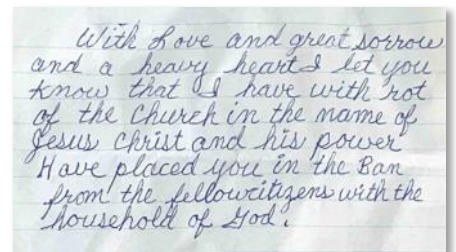 With Love and great sorrow
and a heavy heart I let you
know that I have with rot
of the Church in the name of
Jesus Christ and his power
Have placed you in the Ban
from the fellowcitizens with the
household of God.